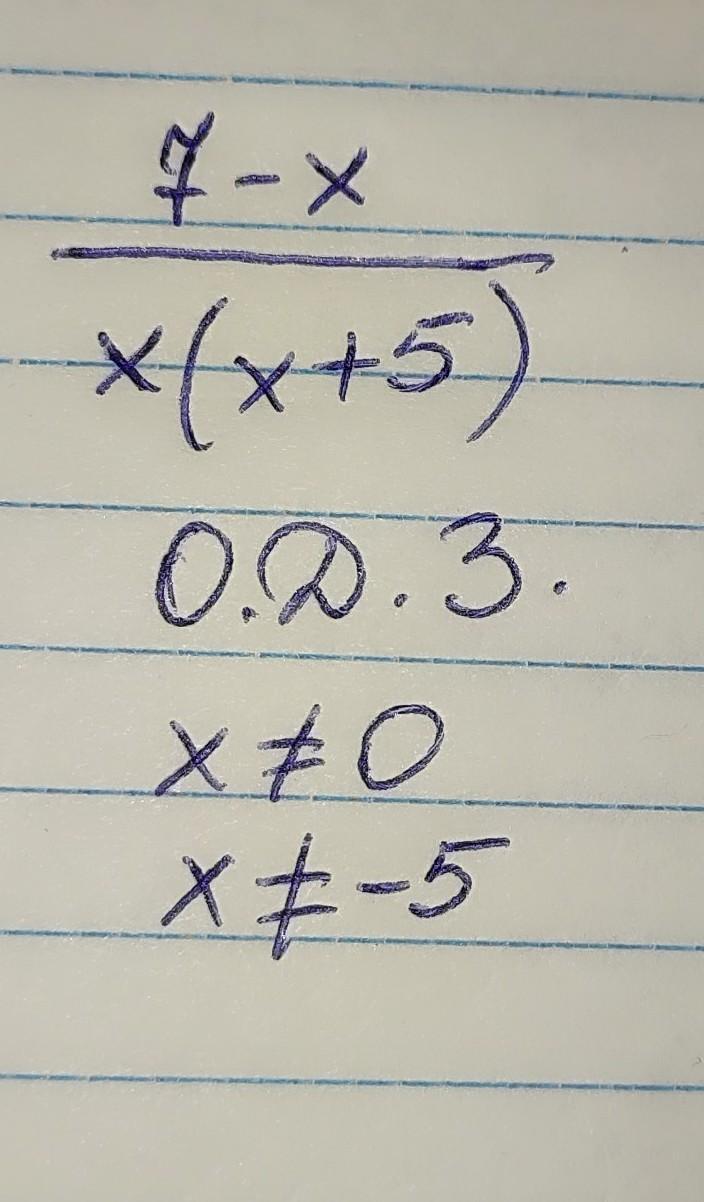 7 - x
x(x+5)
О.Д.З.
x ≠ 0
x ≠ -5